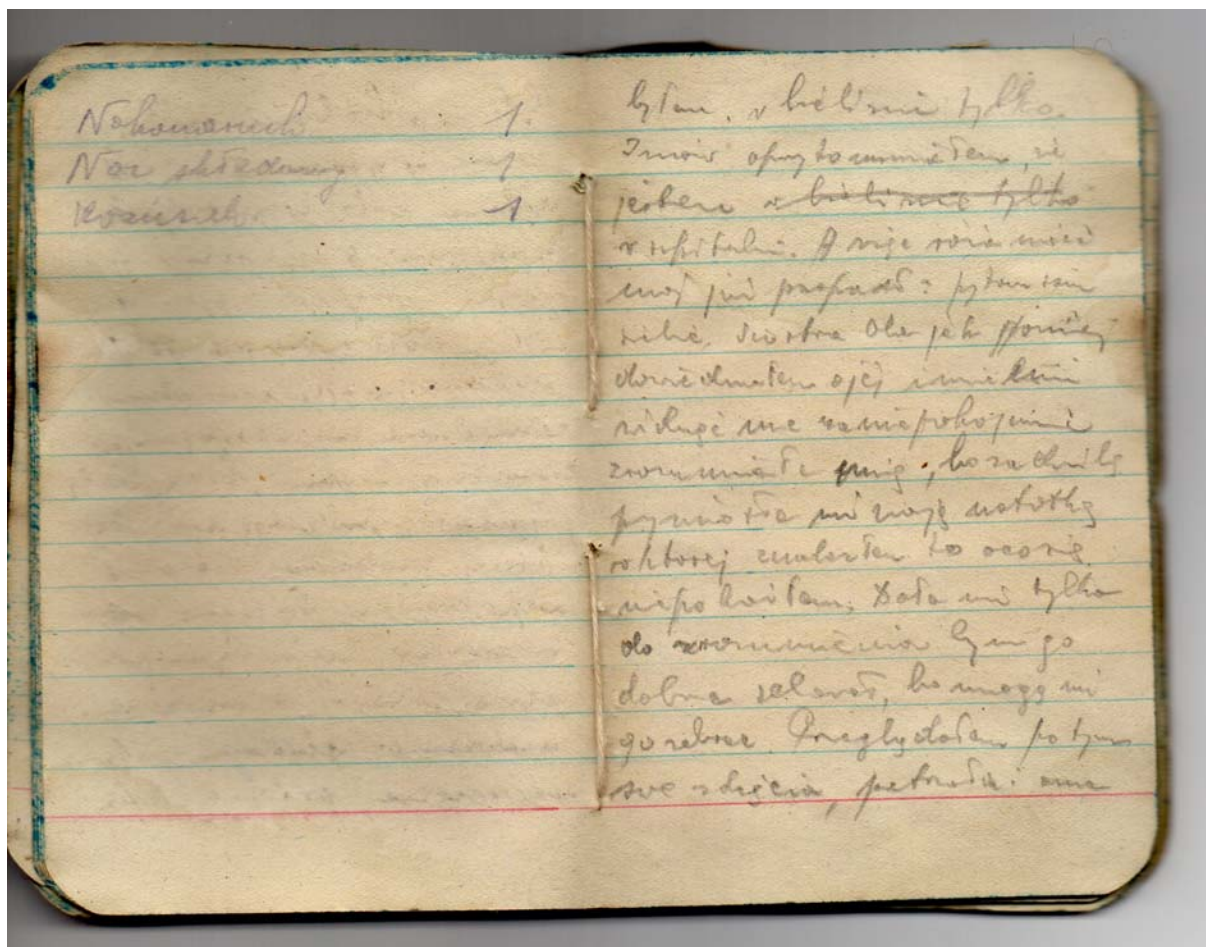 1.
Nóż składany 1
Kożuszek 1.
byłem, w bieliźnie tylko.
Znów oprzytomniałem, że
jestem w bieliźnie tylko
w szpitalu. A więc
mój już przepadł? pytam sam
siebie. Siostra Ola jak później
dowiedziałem o jej imieniu
widząc me zaniepokojenie
zrozumiała mię, bo za chwilę
przyniosła mi moją
w której znalazłem to o co się
niepokoiłem. Dała mi tylko
do zrozumienia bym go
dobrze schował, bo mogą mi
go zebrać. Przeglądałem po tym
swe zdjęcia, i